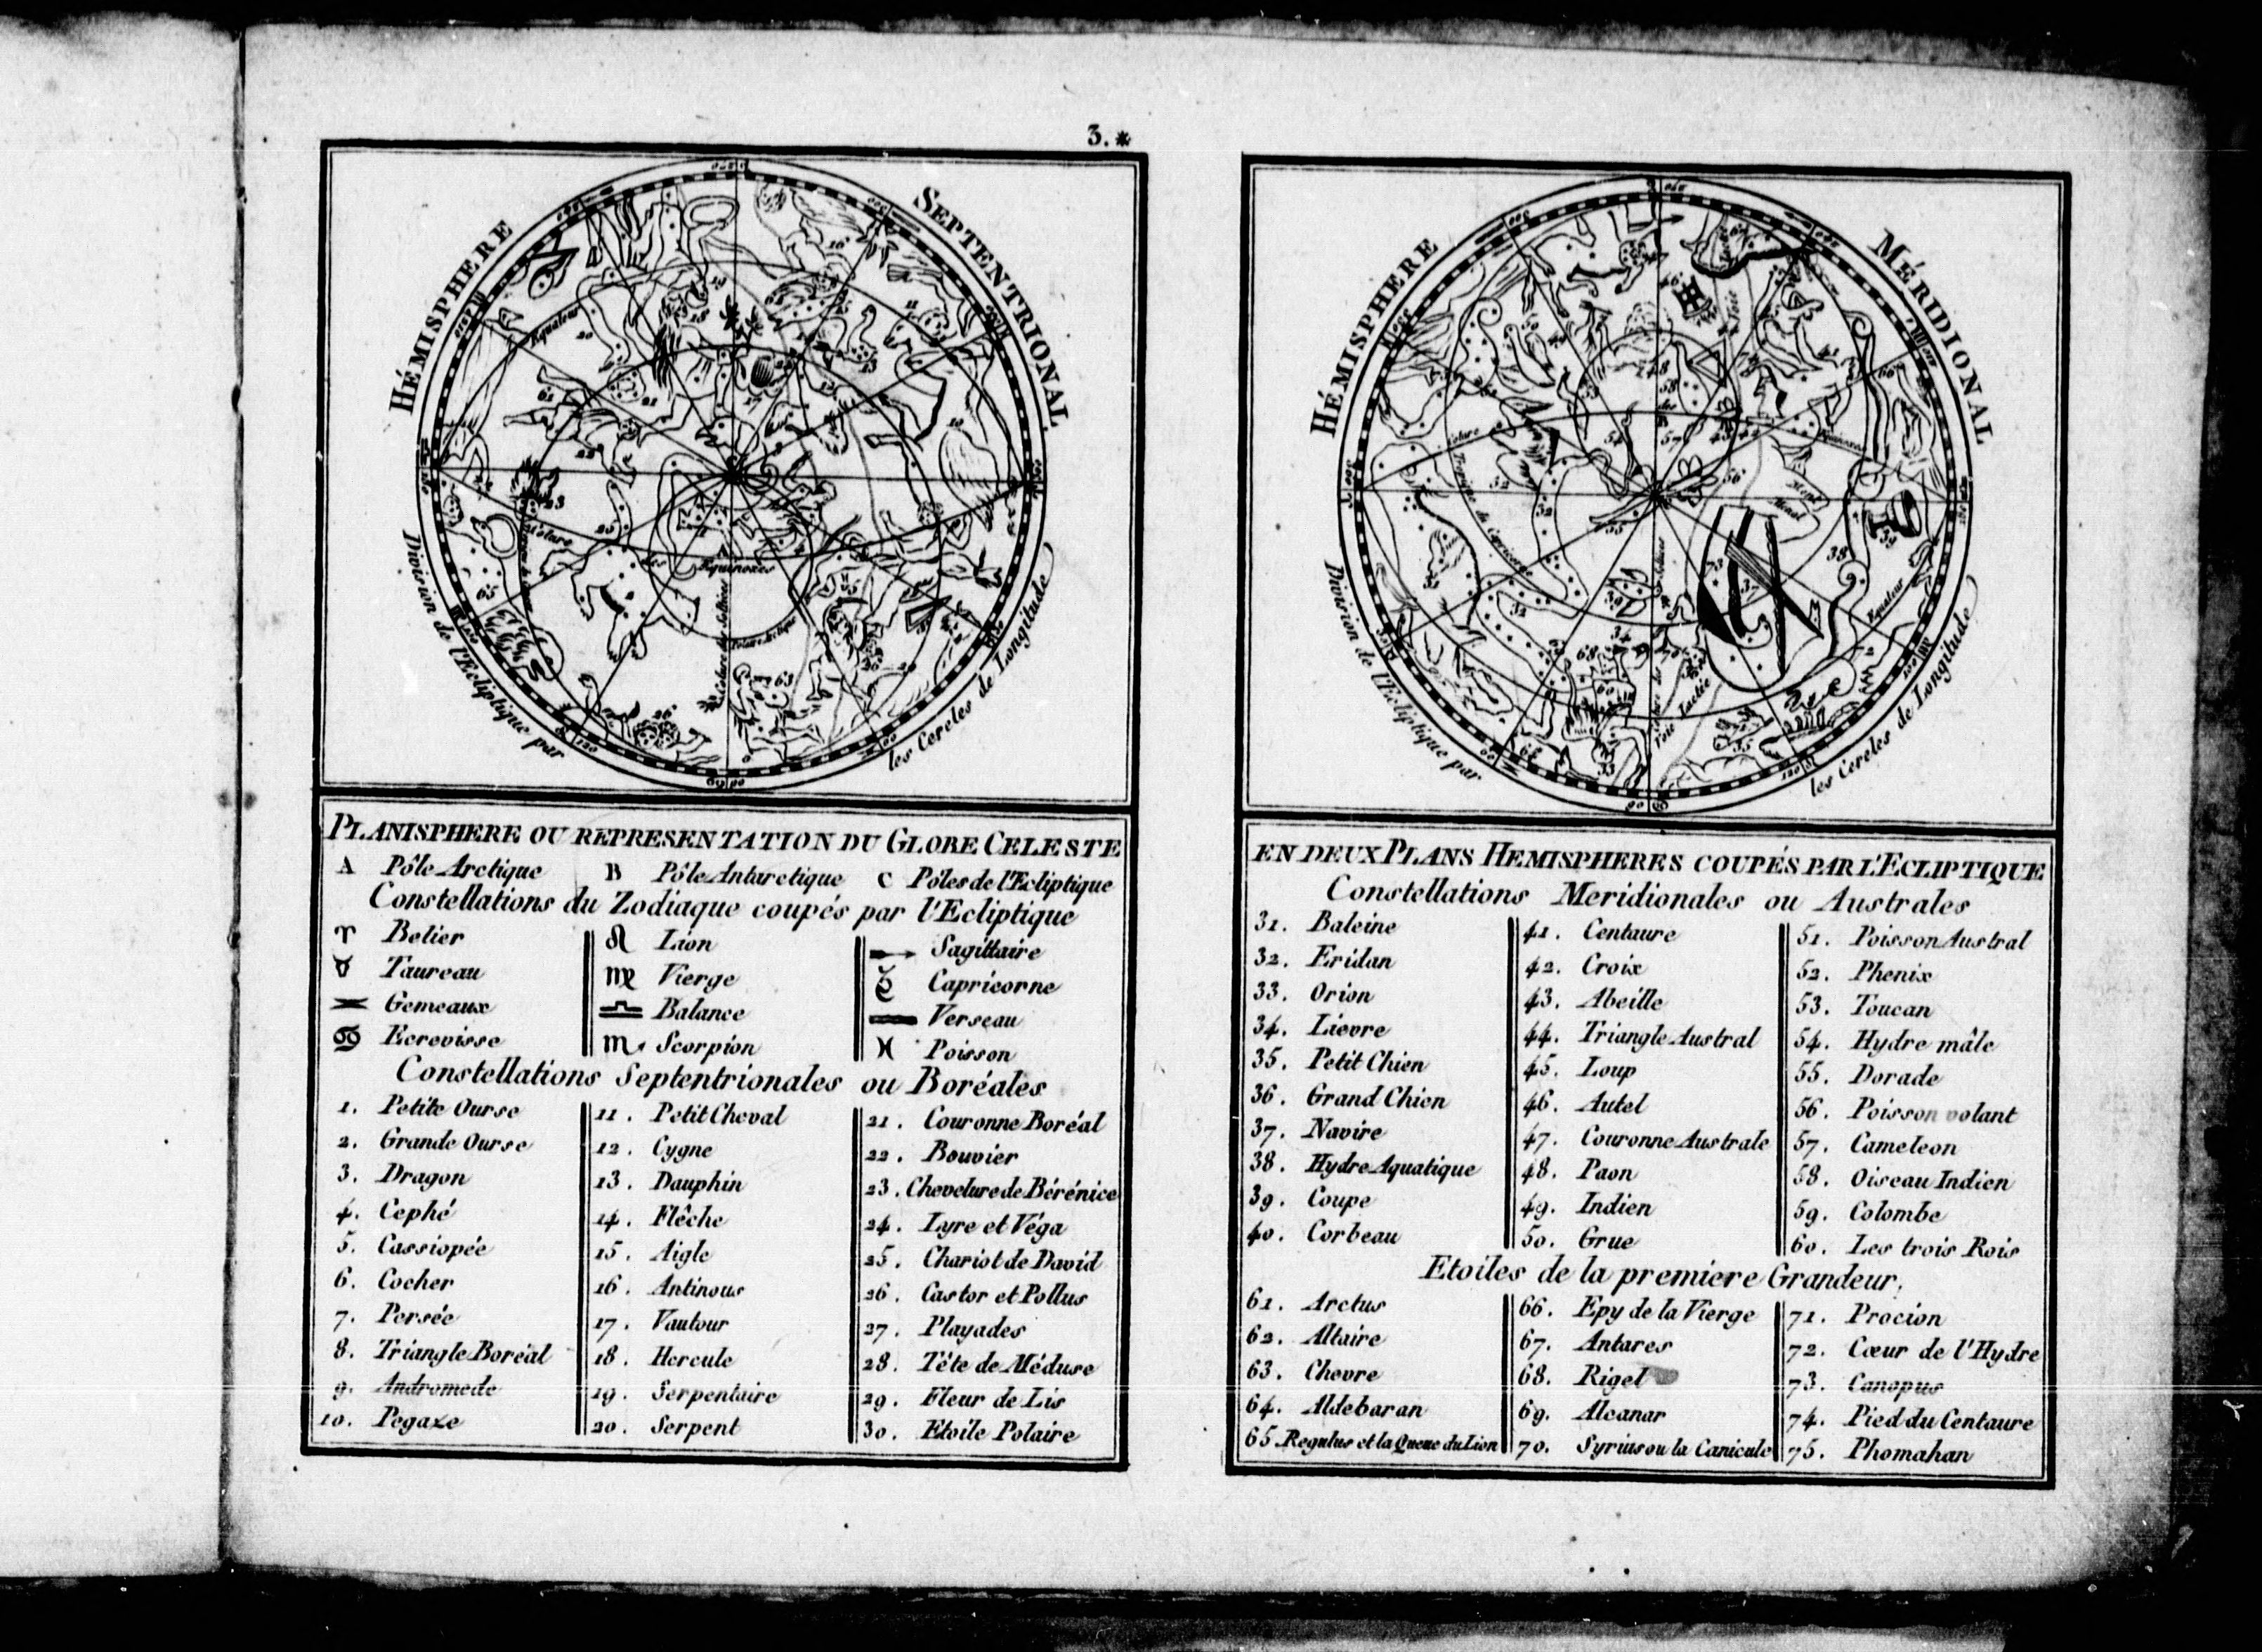 3.*
HÉMISPHERE SEPTENTRIONAL
Equateur
Colure
des
Equinoxes
Colure des Solstices
Polaire Arctique
Division de l'Ecliptique par les Cercles de Longitude
PLANISPHERE OU REPRESENTATION DU GLOBE CELESTE
A Pôle Arctique B Pôle Antarctique C Pôles de l'Ecliptique
Constellations du Zodiaque coupés par l'Ecliptique
♈ Belier
♉ Taureau
Gemeaux
♋ Ecrevisse
♌ Lion
♍ Vierge
♎ Balance
♏ Scorpion
Sagittaire
Capricorne
Verseau
♓ Poisson
Constellations Septentrionales ou Boréales
1. Petite Ourse
2. Grande Ourse
3. Dragon
4. Cephé
5. Cassiopée
6. Cocher
7. Persée
8. Triangle Boréal
9. Andromede
10. Pegaze
11. Petit Cheval
12. Cygne
13. Dauphin
14. Flêche
15. Aigle
16. Antinous
17. Vautour
18. Hercule
19. Serpentaire
20. Serpent
21. Couronne Boréal
22. Bouvier
23. Chevelure de Bérénice
24. Lyre et Véga
25. Chariot de David
26. Castor et Pollus
27. Playades
28. Tête de Méduse
29. Fleur de Lis
30. Etoile Polaire
HÉMISPHERE MÉRIDIONAL
Colure
Tropique du Capricorne
Equateur
Voie Lactée
Division de l'Ecliptique par les Cercles de Longitude
EN DEUX PLANS HEMISPHERES COUPÉS PAR L'ECLIPTIQUE
Constellations Meridionales ou Australes
31. Baleine
32. Eridan
33. Orion
34. Lievre
35. Petit Chien
36. Grand Chien
37. Navire
38. Hydre Aquatique
39. Coupe
40. Corbeau
41. Centaure
42. Croix
43. Abeille
44. Triangle Austral
45. Loup
46. Autel
47. Couronne Australe
48. Paon
49. Indien
50. Grue
51. Poisson Austral
52. Phenix
53. Toucan
54. Hydre mâle
55. Dorade
56. Poisson volant
57. Cameleon
58. Oiseau Indien
59. Colombe
60. Les trois Rois
Etoiles de la premiere Grandeur.
61. Arctus
62. Altaire
63. Chevre
64. Aldebaran
65. Regulus et la Queue du Lion
66. Epy de la Vierge
67. Antares
68. Rigel
69. Alcanar
70. Syrius ou la Canicule
71. Procion
72. Cœur de l'Hydre
73. Canopus
74. Pied du Centaure
75. Phomahan